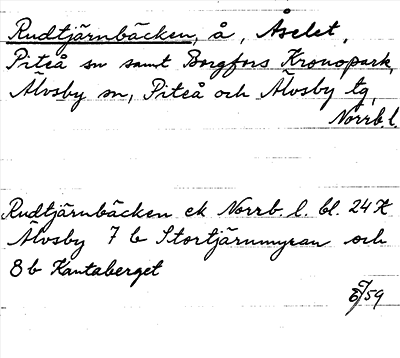 Rudtjärnbäcken, å, Åselet,
Piteå sn samt Borgfors Kronopark,
Älvsby sn, Piteå och Älvsby tg,
Norrb.l.
Rudtjärnbäcken ek Norrb. l. bl. 24 K
Älvsby 7 b Stortjärnmyran och
8 b Kantaberget
59